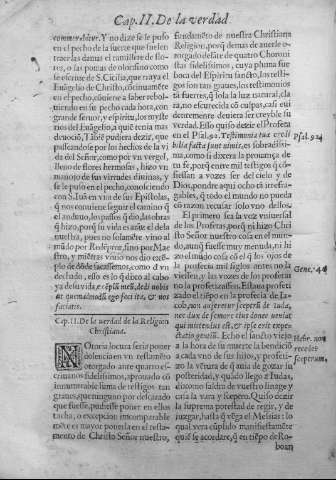 Cap. II. De la verdad
commorabitur. Y no dize se le puso
en el pecho de la suerte que suelen
traer las damas el ramillete de flo-
res, o las pomas de olor: sino como
se escriue de S. Cicilia, que traya el
Euãgelio de Christo, cõtinuamẽte
en el pecho, cõuiene a saber rebol-
uiendo en su pecho cada hora, con
grande feruor, y espiritu, los myste-
rios del Euãgelio, a quiẽ tenia mas
deuociõ,
passeãdose por los hechos de la vi
da del Señor, como por vn vergel,
lleno de flores hermosas, hizo vn
manojo de sus virtudes diuinas, y
se le puso en el pecho, conosciendo
con S. Iuã en vna de sus Epistolas,
q̃ nos conuiene seguir el camino q̃
el anduuo, los passos q̃ dio, las obras
q̃ hizo, porq̃ su vida es norte dela
nuestra, pues no solamẽte vino al
mũdo por Redẽptor, sino por Mae
stro, y miẽtras viuio nos dio exem-
plo de dõde sacassemos, como d vn
dechado, esso es lo q̃ dixo al cabo
ya de su vida, exẽplũ meũ dedi vobis
ut quemadmodũ ego feci ita, & vos
faciatis.
Cap. II. De la verdad de la Religion
Christiana.
NOtoria locura seria poner
dolencia en vn testamẽto
otorgado ante quatro es-
criuanos fidelissimos, aprouado cõ
innumerable suma de testigos tan
graues, que ninguno por descarado
que fuesse, pudiesse poner en ellos
tacha, o excepcion: incomparable
mẽte es mayor ponerla en el testa-
mento de Christo Señor nuestro,
fundamẽto de nuestra Christiana
Religion, porq̃ demas de auerle o-
torgado delãte de quatro Choronis
tas fidelissimos, cuya pluma fue
boca del Espiritu sancto, los testi-
gos son tan graues, los testimonios
tã fuertes, q̃ sola la luz natural, cla
ra, no escurecida cõ culpas, casi eui
dentemente deuiera ser creyble su
verdad. Esso quiso dezir el Profeta
en el Psal. 92. Testimonia tua credi
bilia facta sunt nimis, es sobradissi-
ma, como si dixera la prouança de
tu fe, porq̃ entre mil testigos q̃ cõ-
fiessan a vozes ser del cielo y de
Dios, pondre aqui ocho tã irrefra-
gables, q̃ todo el mundo no pueda
cõ razon recusar solo vno dellos.
El primero sea la voz vniuersal
de los Profetas, porq̃ ni hizo Chri
sto Señor nuestro cosa en el mun-
do, aunq̃ fuesse muy menuda, ni hi
zo el mũdo cosa cõ el q̃ los ojos de
la profecia mil siglos antes no la
viessen, y las vozes de los profetas
no la profetizassen. Estaua profeti
zado el tiẽpo en la profecia de Ia-
cob, non auferetur sceptrũ de Iuda,
nec dux de femore eius donec ueniat
qui mittendus est, & ipse erit expe-
ctatio gentiũ. Echo el sancto viejo
a la hora de su muerte la bendiciõ
a cada vno de sus hijos, y profeti-
zo la vẽtura de q̃ auia de gozar su
posteridad, y quãdo llego a Iudas,
dixo: no faldra de vuestro linage y
casa la vara y sceptro. Quiso dezir
la suprema potestad de regir, y de
juzgar, hasta q̃ vẽga el Messias: lo
qual vera cũplido manifiestamẽte
quiẽ se acordare, q̃ en tiẽpo de Ro-
boan
Psal. 92.4
Gene. 49
Hebr. non
recedet
sceptrum,